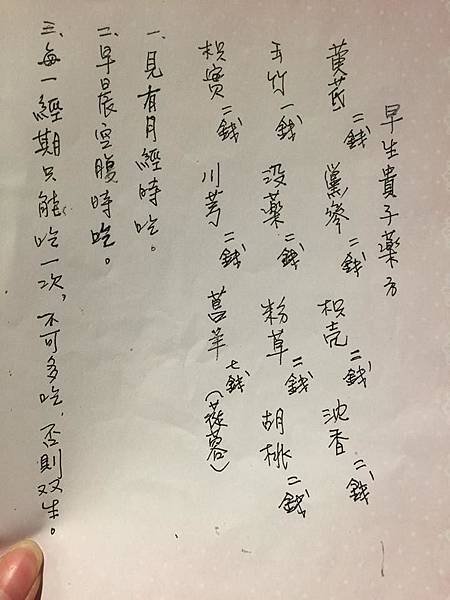 早生貴子藥方
黃芪二錢 黨參二錢 枳壳二錢 沈香二錢
玉竹一錢 沒藥二錢 粉草二錢 胡桃二錢
枳實二錢 川芎二錢 菖羊七錢(蓯蓉)
一、見有月經時吃。
二、早晨空腹時吃。
三、每一經期只能吃一次，不可多吃，否則双生。